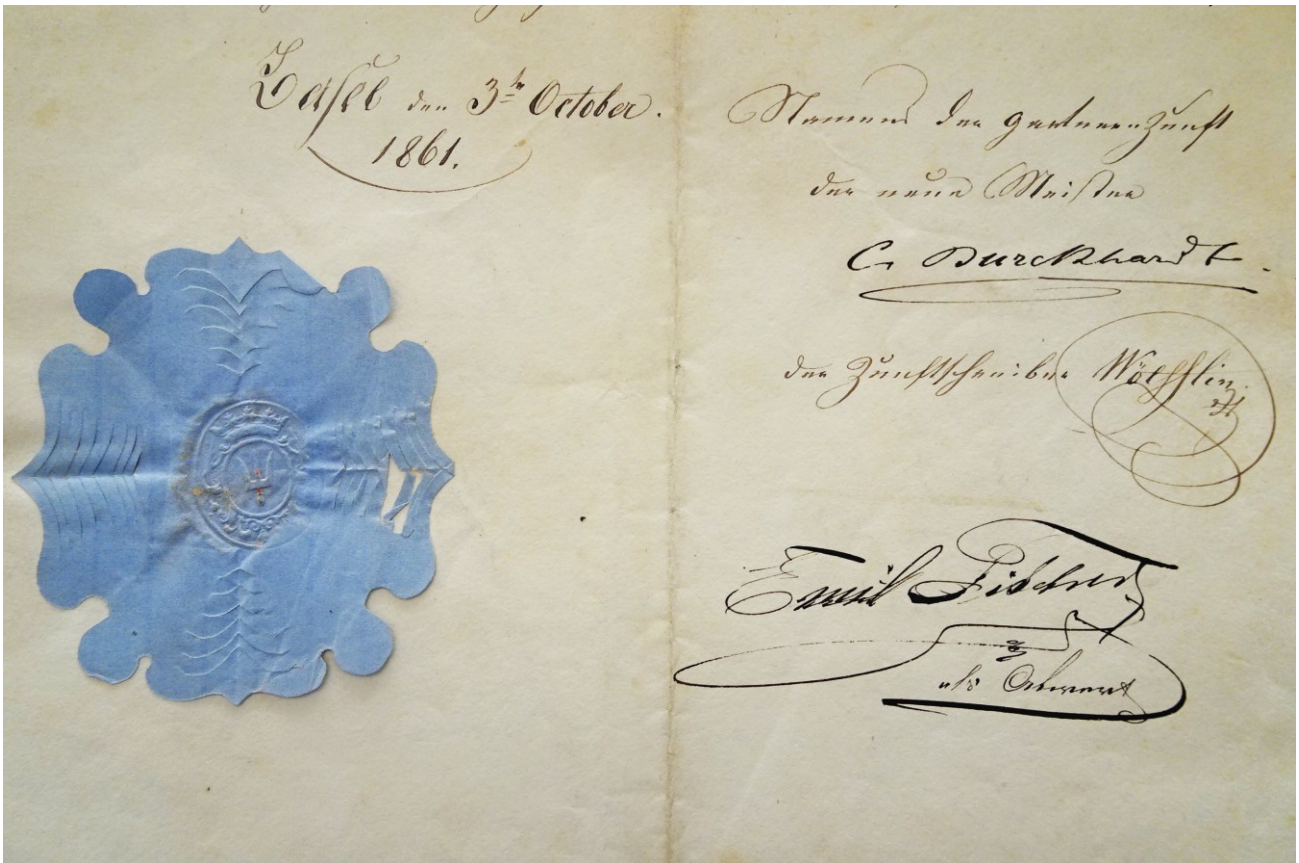 Basel den 3ten October.
1861.
Namens der Gartnernzunft
der neue Meister
C. Burckhardt.
der Zunftschreiber Wölfflin
Emil Fischer
als